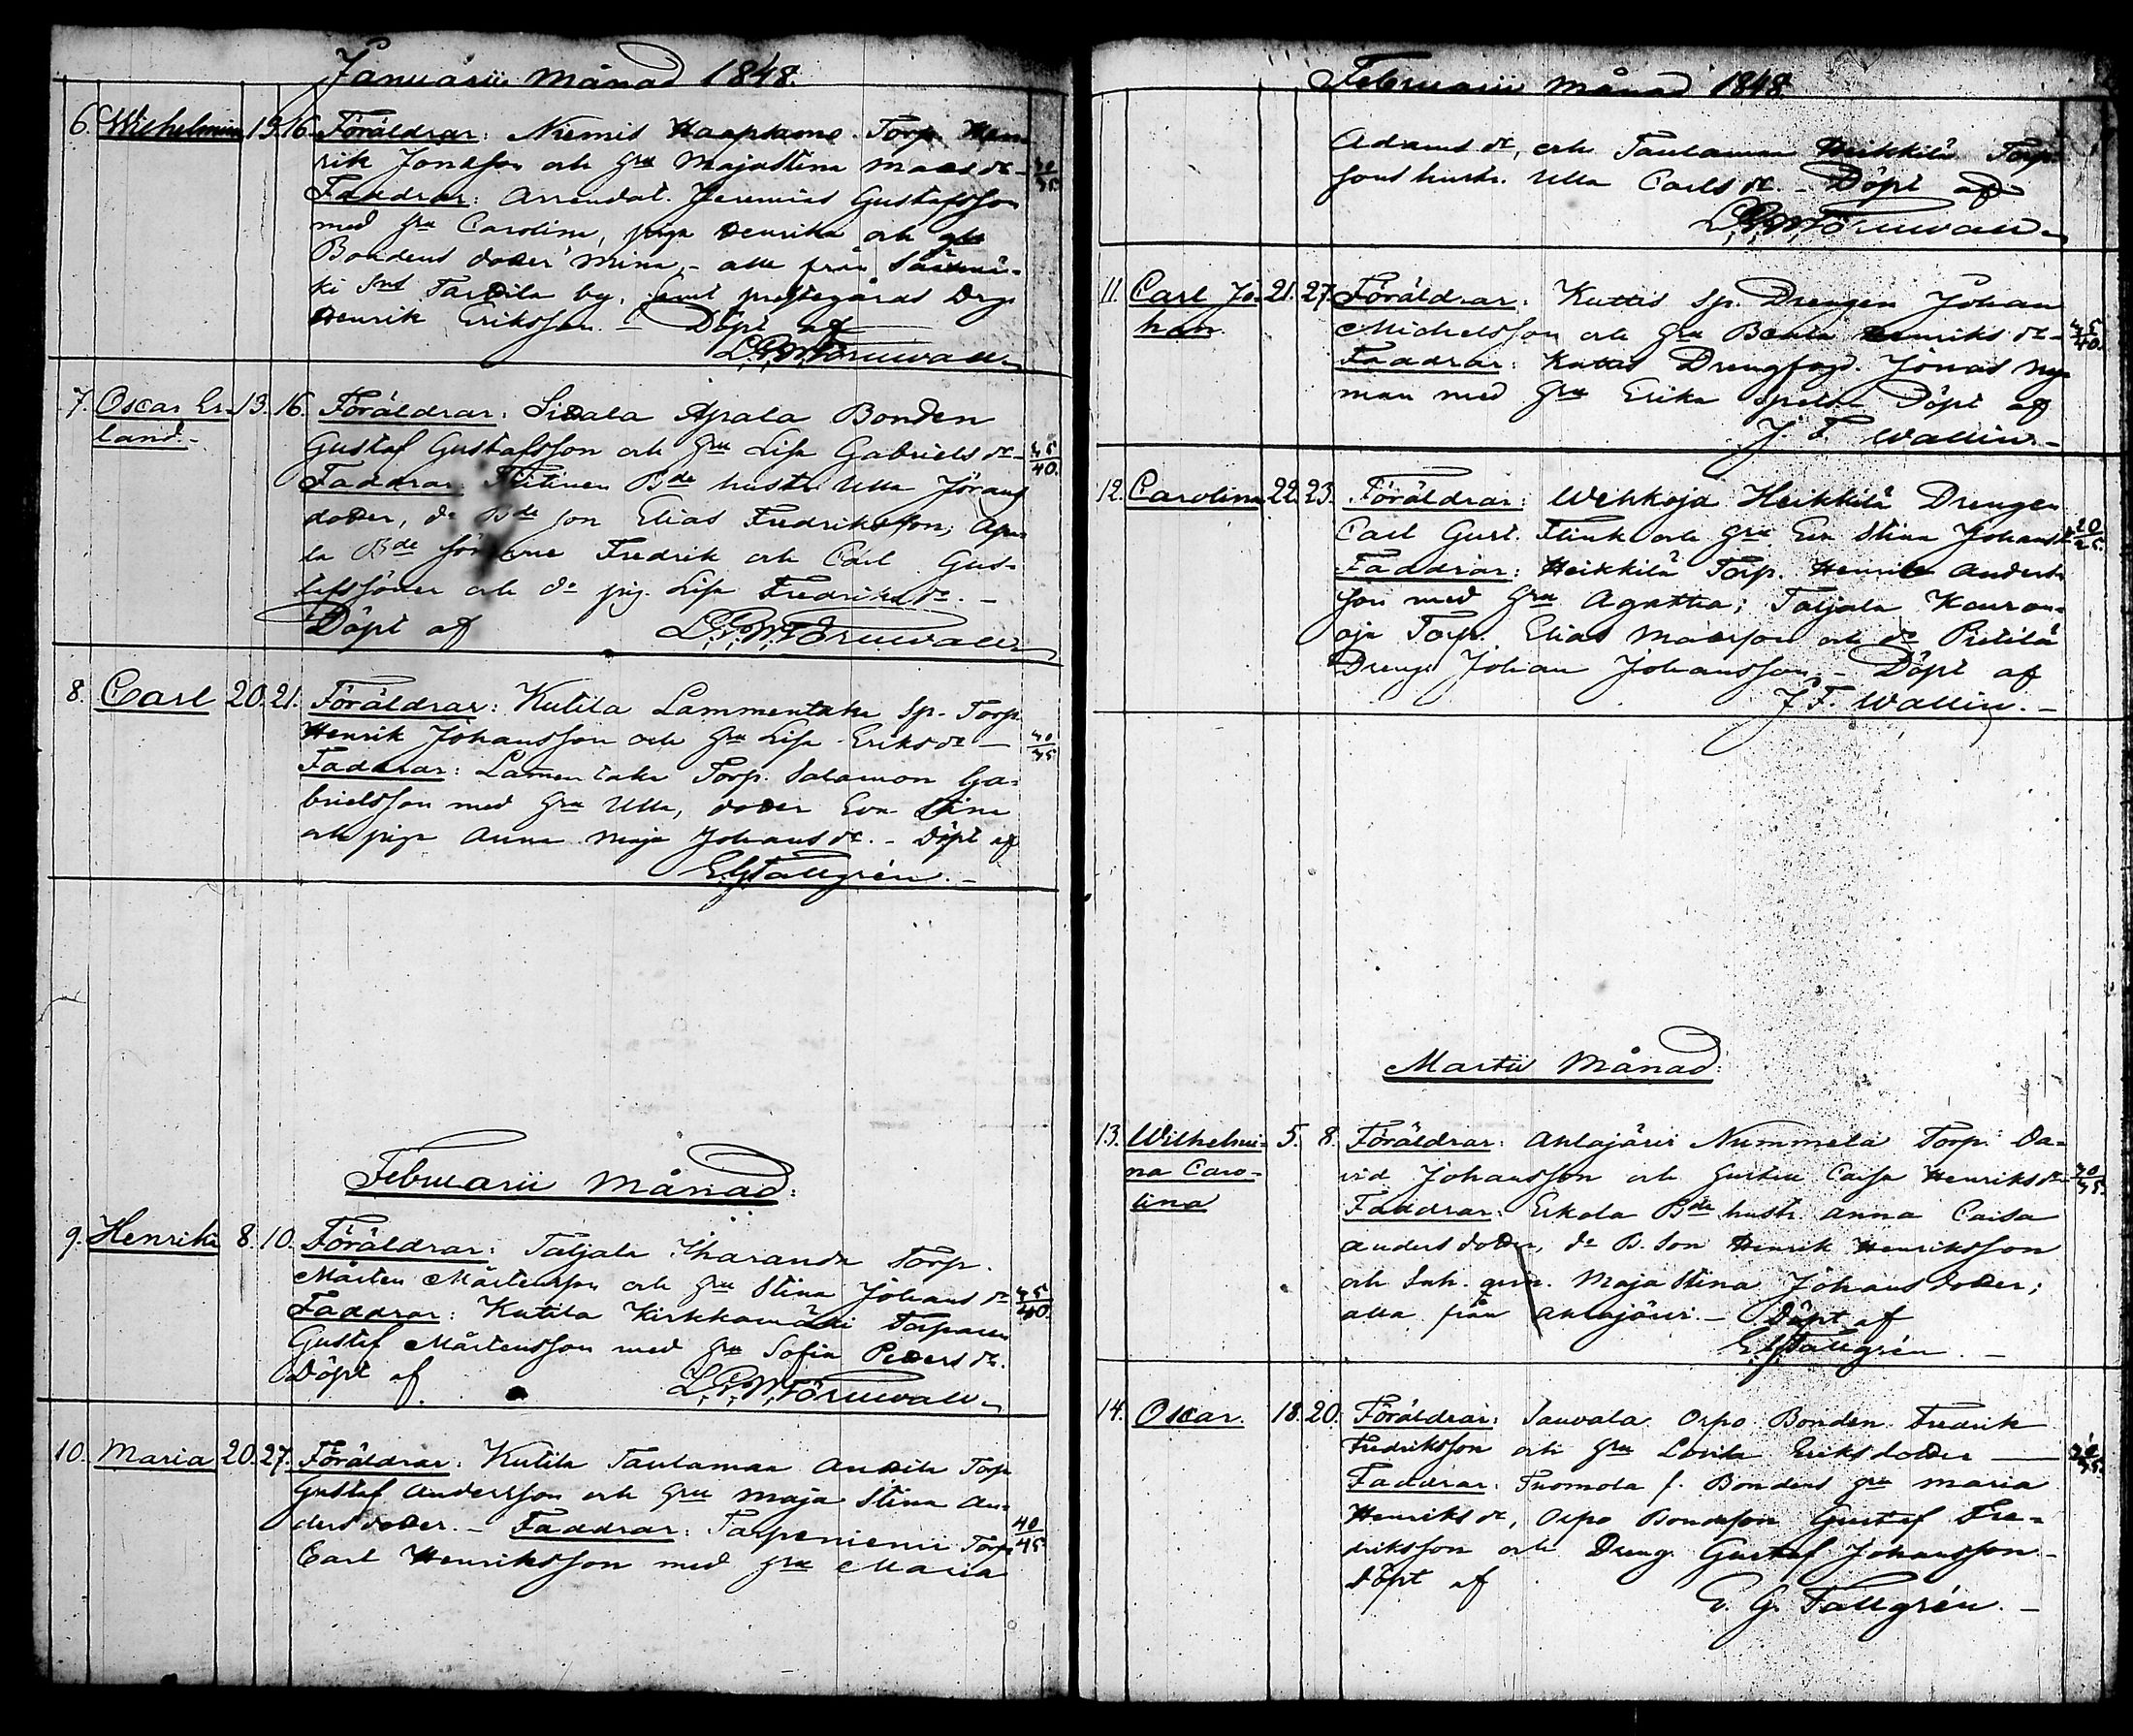 Januarii Månad 1848.
6. Wilhelmina 15. 16. Föräldrar: Niemis Haapkams Torp. Hen-
rik Jonasson och Hru Majastina Matsdr - 40/45
Faddrar: Arrendat. Jeremias Gustafsson
med Hru Carolina, piga Henrika och
Bondens dotter Mina, - alla från Säkmä-
ki Snt Tardila by, samt prestegårds Drg.
Henrik Eriksson. - Döpt af
L. G. W. Törnwall
7. Oscar Er- 13. 16. Föräldrar: Sidala Apala Bonden
land.- Gustaf Gustafsson och Hru Lisa Gabrielsdr - 35/40.
Faddrar: Bde hustr. Ulla Jörans
dotter, do Bde son Elias Fredriksson, Apa-
la Bde Sönerne Fredrik och Carl Gus-
tafssöner och do pig. Lisa Fredriksdr. -
Döpt af L. G. W. Törnwall
8. Carl 20. 21. Föräldrar: Kutila Lammentaka Sp. Torp.
Henrik Johansson och Hru Lisa Eriksdr - 40/45
Faddrar: Lamentaka Torp. Salamon Ga-
brielsson med Hru Ulla, dotter Eva Stina
och piga Anna Maja Johansdr. - Döpt af
E. G. Tallgrén. -
Februarii Månad:
9. Henrika 8. 10. Föräldrar: Taljala Iharanda Torp.
Mårten Mårtensson och Hru Stina Johansdr 35/40.
Faddrar: Kutila Kirkkomäki Torparen
Gustaf Mårtensson med Hru Sofia Pedersdr.
Döpt af L. G. W. Törnwall
10. Maria 20. 27. Föräldrar: Kutila Taulamaa Andila Torp
Gustaf Andersson och Hru Maja Stina An-
dersdotter. - Faddrar: Tarpenienii Torp. 40/45
Carl Henriksson med Hru Maria
Februarii Månad 1848
Adamsdr, och Taulamaa Heikkilä Torp.
sons hustr. Ulla Carlsdr. - Döpt af
L. G. W. Törnwall
11. Carl Jo- 21. 27. Föräldrar: Kuttis Sp. Drengen Johan
han Michelsson och Hru Beata Henriksdr - 35/40.
Faddrar: Kuttis Drengfogd. Jonas Ny-
man med Hru Erika Döpt af
J F Wallin. -
12. Carolina 22. 23. Föräldrar: Wehkoja Heikkilä Drengen
Carl Gust. Flink och Hru Eva Stina Johansdr 20/25.
Faddrar: Heikkilä Torp. Henrik Anders-
son med Hru Agatha; Taljala Kauran-
oja Torp. Elias Matsson och do Pietilä
Dreng. Johan Johansson. - Döpt af
J. F. Wallin. -
Martii Månad:
13. Wilhelmi- 5. 8. Föräldrar: Anlajärvi Nummela Torp. Da-
na Caro- vid Johansson och hustru Caisa Henriksdr - 40/45.
lina Faddrar: Erkola Bde hustr. Anna Caisa
Andersdotter, do B. Son Henrik Henriksson
och Inh. qvin. Maja Stina Johansdotter;
alla från Anlajärvi. - Döpt af
E. G. Tallgrén. -
14. Oscar. 18. 20. Föräldrar: Sauvala Orpo Bonden Fredrik
Fredriksson och Hru Lovisa Eriksdotter
Faddrar: Tuomola f. Bondens Hru Maria
Henriksdr, Orpo Bondeson Gustaf Fre-
driksson och Dreng. Gustaf Johansson. -
Döpt af E. G. Tallgrén. -